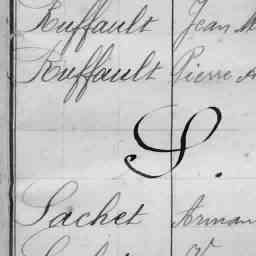 Ruffault Jean M
Ruffault Pierre A
S.
Sachet Arman